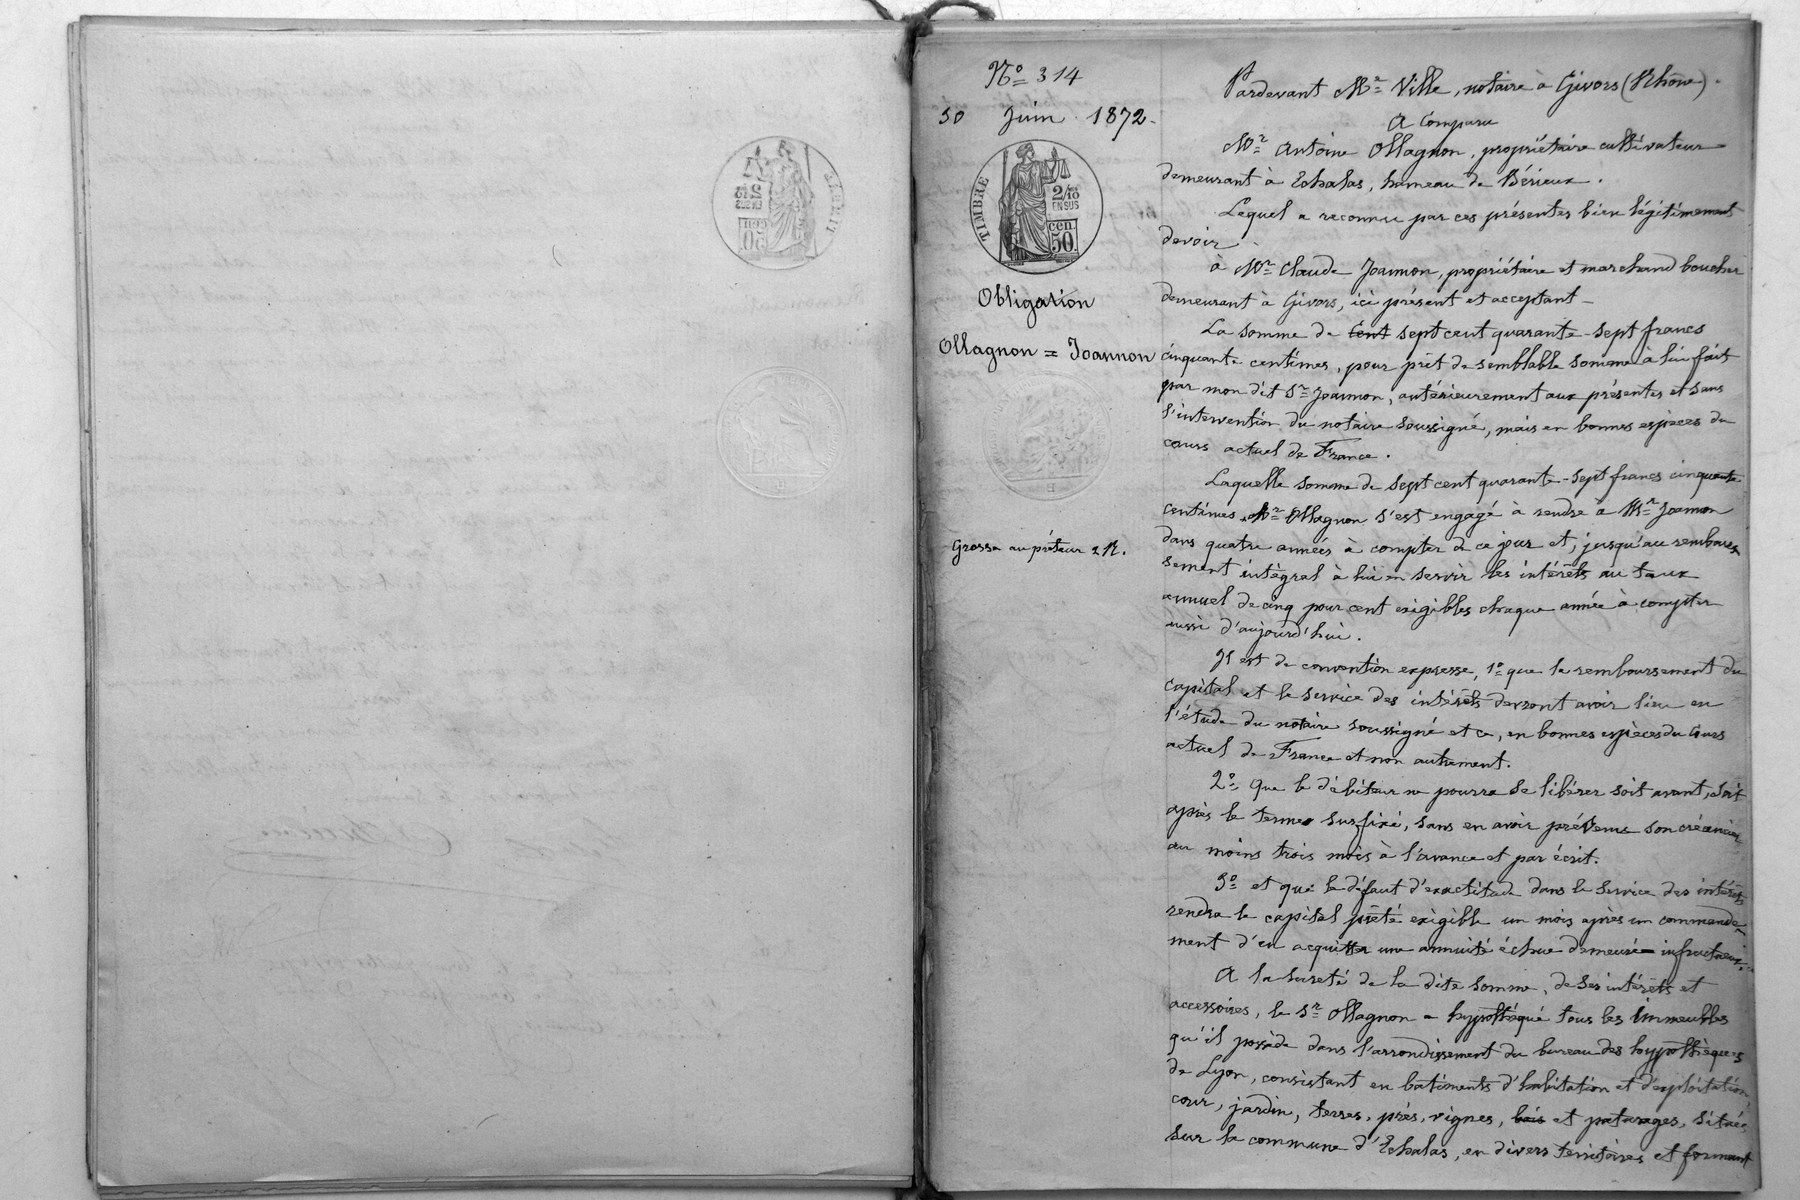 N° 314
30 Juin 1872.
TIMBRE
2/10
EN SUS
cen.
50.
Obligation
Ollagnon = Joannon
Grosse au prêteur 2 R.
Pardevant Me Ville, notaire à Givors (Rhône).
A Comparu
Mr Antoine Ollagnon, propriétaire cultivateur
demeurant à Echalas, hameau de Bérieux.
Lequel a reconnu par ces présentes bien légitimement
devoir
à Mr Claude Joannon, propriétaire et marchand boucher
demeurant à Givors, ici présent et acceptant _
La somme de cent sept cent quarante-sept francs
cinquante centimes, pour prêt de semblable somme à lui fait
par mon dit Sr Joannon, antérieurement aux présentes et sans
l'intervention du notaire soussigné, mais en bonnes espèces du
cours actuel de France.
Laquelle somme de sept cent quarante-sept francs cinquante
centimes, Mr Ollagnon s'est engagé à rendre à Mr Joannon
dans quatre années à compter de ce jour et, jusqu'au rembours
sement intégral à lui en servir les intérêts au taux
annuel de cinq pour cent exigibles chaque année à compter
aussi d'aujourd'hui.
Il est de convention expresse, 1° que le remboursement du
capital et le service des intérêts devront avoir lieu en
l'étude du notaire soussigné et ce, en bonnes espèces du cours
actuel de France et non autrement.
2° Que le débiteur ne pourra se libérer soit avant, soit
après le terme susfixé, sans en avoir prévenu son créancier
au moins trois mois à l'avance et par écrit.
3° et que le défaut d'exactitude dans le service des intérêts
rendra le capital prêté exigible un mois après un commande-
ment d'en acquitter une annuité échue demeuré infructueux.
A la sureté de la dite somme, de ses intérêts et
accessoires, le Sr Ollagnon a hypothéqué tous les immeubles
qu'il possède dans l'arrondissement du bureau des hypothèques
de Lyon, consistant en batiments d'habitation et d'exploitation,
cour, jardin, terres, prés, vignes, bois et paturages, situés
sur la commune d'Echalas, en divers territoires et formant